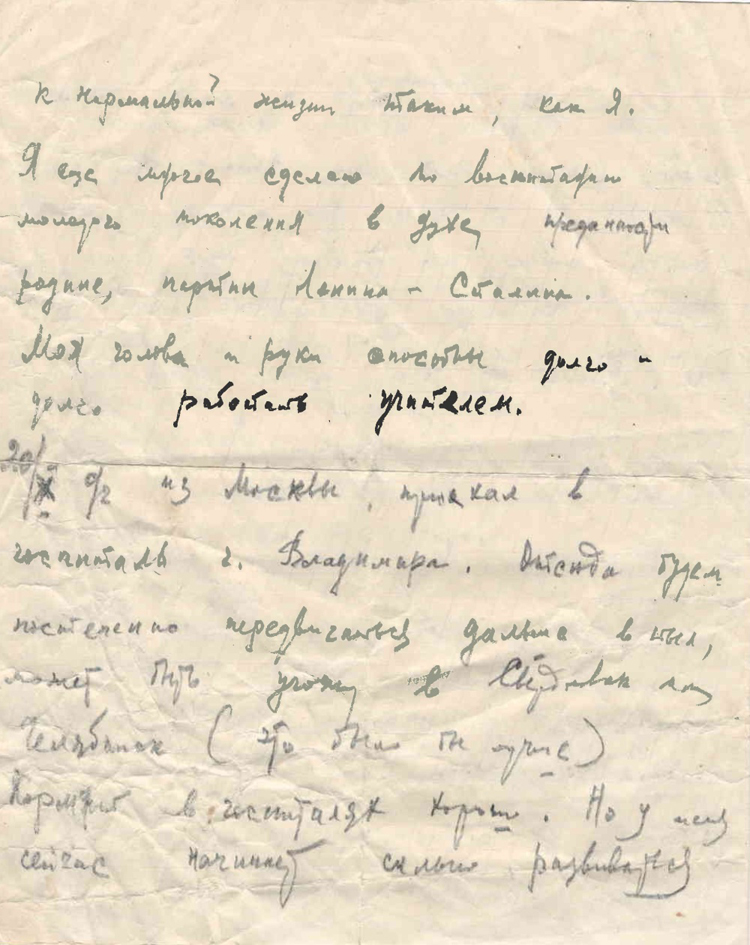 к нормальной жизни таким, как я.
Я еще многое сделаю по воспитанию
молодого поколения в духе преданности
родине, партии Ленина – Сталина.
Моя голова и руки способны долго –
долго работать учителем.
из Москвы, приехал в
госпиталь г. Владимира. Отсюда будем
постепенно передвигаться дальше в тыл,
может быть угожу в Свердловск или
Челябинск (это было бы лучше)
Кормят в госпиталях хорошо. Но у меня
сейчас начинает сильно развиваться